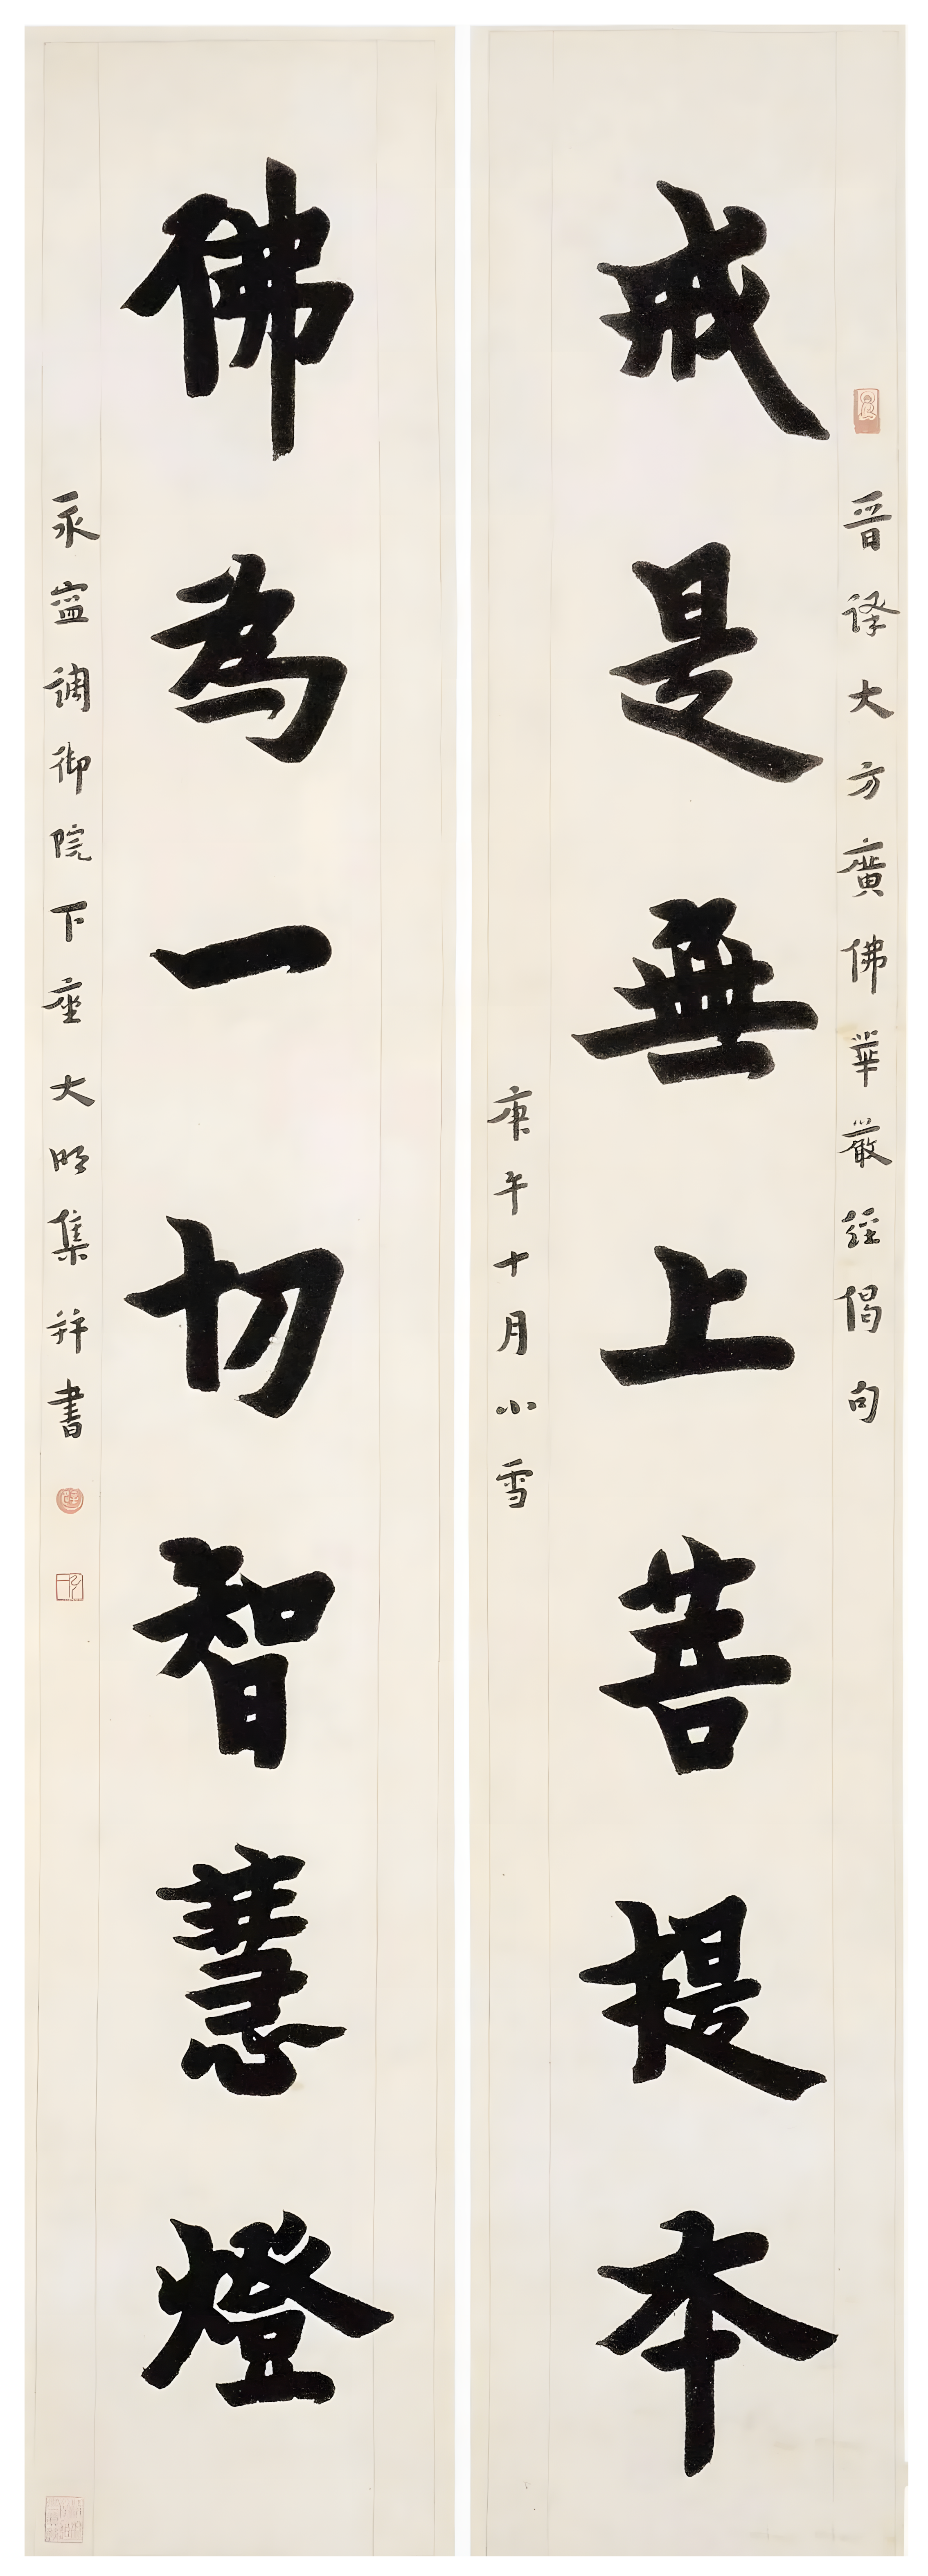 晉譯大方廣佛華嚴經偈句
戒是無上菩提本
庚午十月小雪
佛為一切智慧燈
永寧調御院下座大明集并書